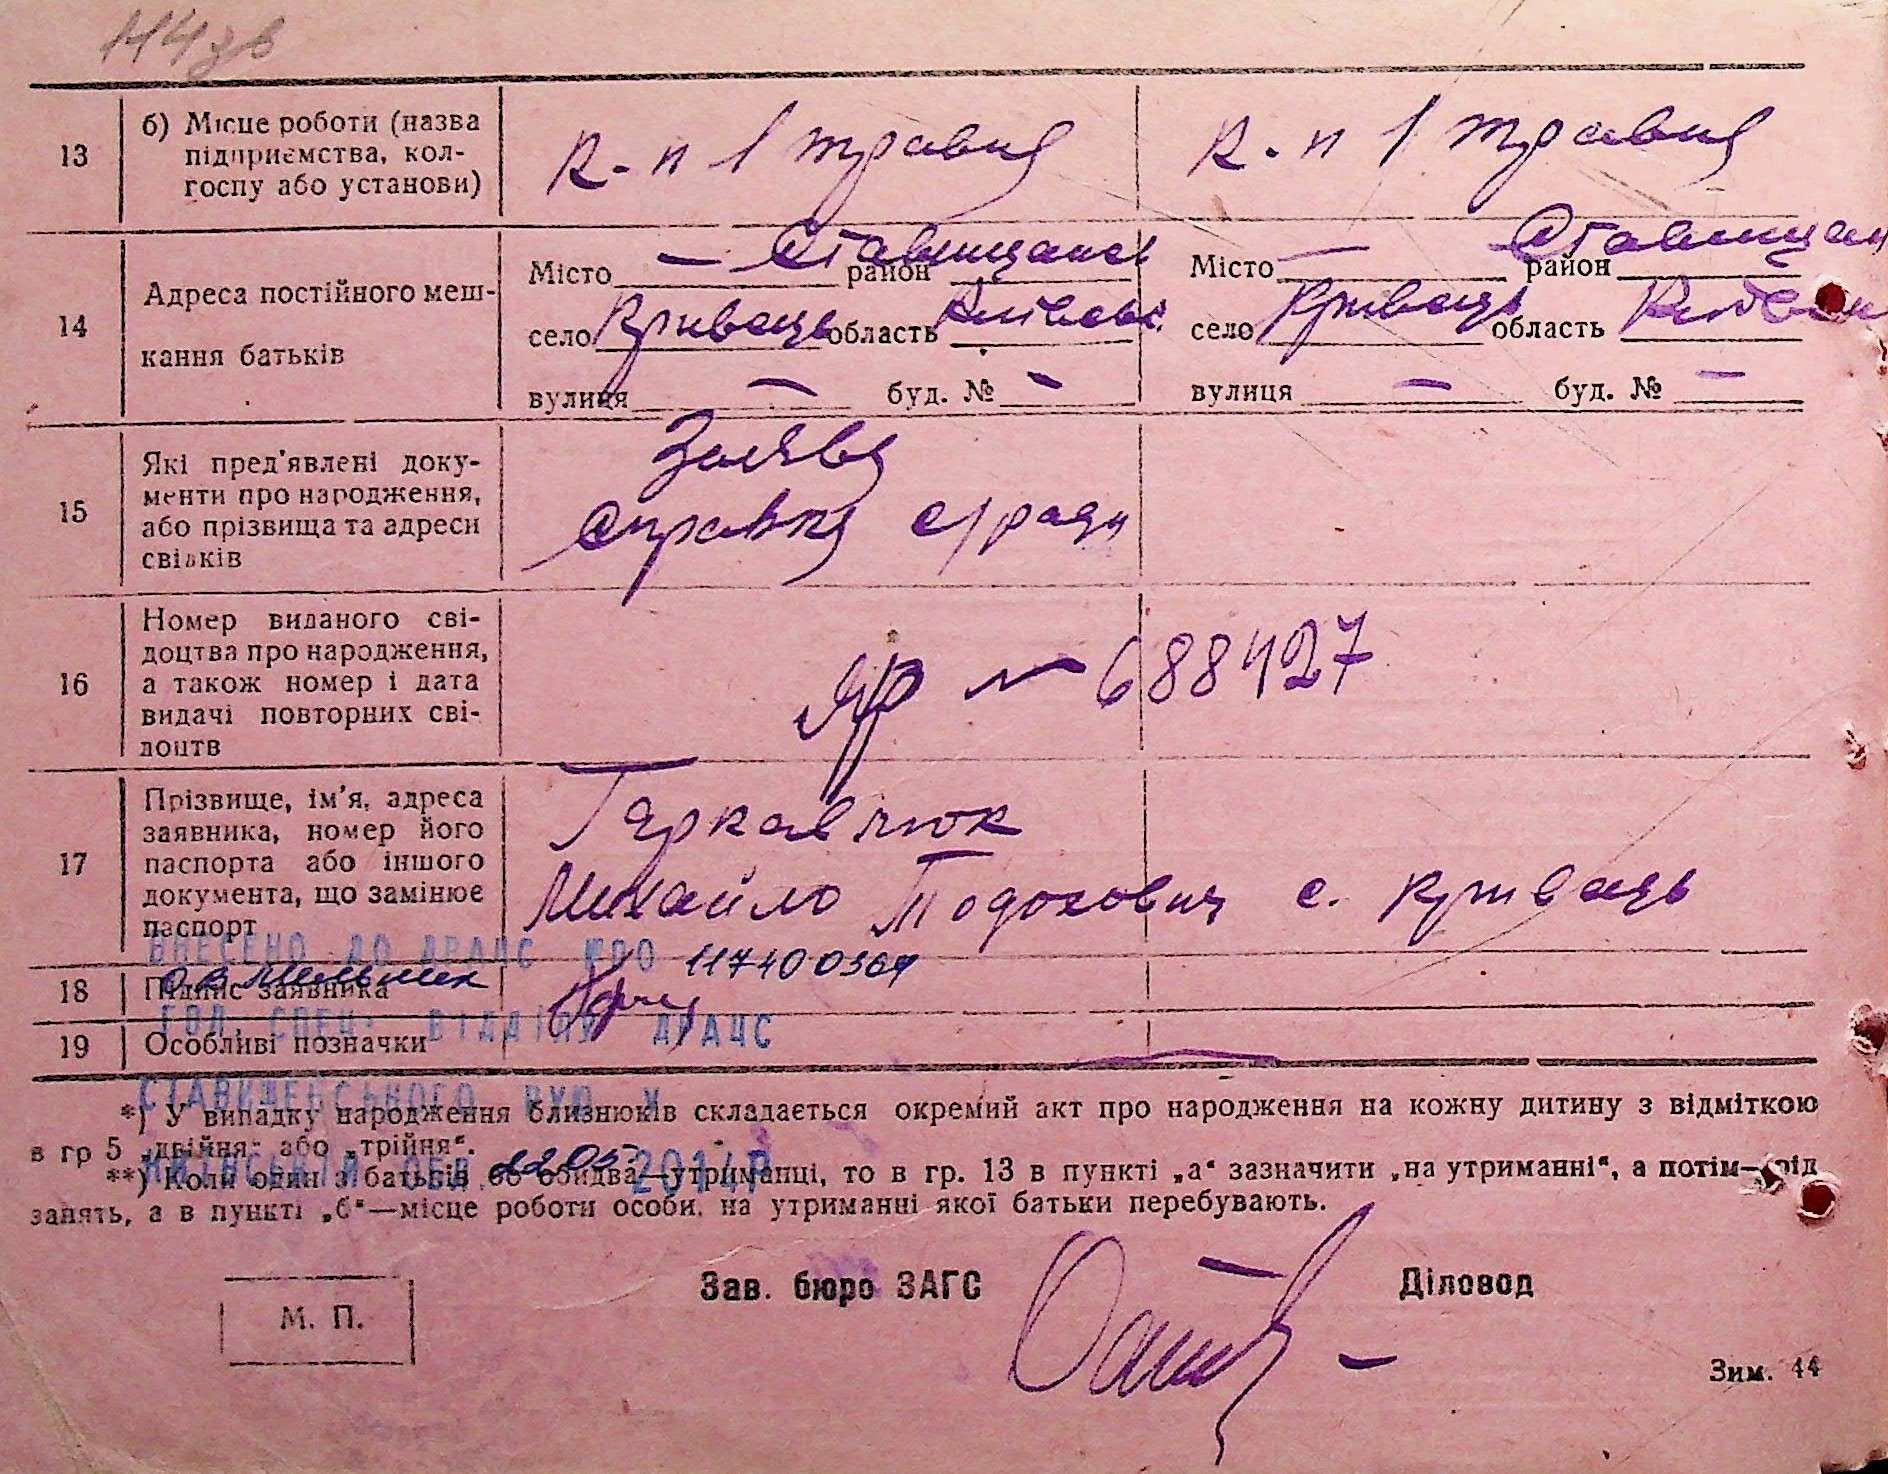 144 зв
13
б) Місце роботи (назва
підприємства, кол-
госпу або установи)
к-п 1 травня
к-п 1 травня
14
Адреса постійного меш-
кання батьків
Місто — район Ставищанськ
село Кривець область Київськ.
вулиця — буд. № —
Місто — район Ставищан
село Кривець область Київськ
вулиця — буд. № —
15
Які пред'явлені доку-
менти про народження,
або прізвища та адреси
свідків
Заява
Справка с/ради
16
Номер виданого сві-
доцтва про народження,
а також номер і дата
видачі повторних сві-
доцтв
ЯР — 688427
17
Прізвище, ім'я, адреса
заявника, номер його
паспорта або іншого
документа, що замінює
паспорт
Гаркавлюк
Михайло Тодохович с. Кривець
ВНЕСЕНО ДО ДРАЦС ПРО 117400369
18
Підпис заявника
О В Мельник
ГОЛ. СПЕЦ. ВІДДІЛУ ДРАЦС
19
Особливі позначки
СТАВИЩЕНСЬКОГО РУЮ У
*) У випадку народження близнюків складається окремий акт про народження на кожну дитину з відміткою
в гр 5 „двійня" або „трійня".
КИЇВСЬКІЙ ОБЛ. 22 05 2014Р
**) Коли один з батьків чи обидва—утриманці, то в гр. 13 в пункті „а" зазначити „на утриманні", а потім—рід
занять, а в пункті „б"—місце роботи особи, на утриманні якої батьки перебувають.
М. П.
Зав. бюро ЗАГС
Діловод
—
Зим. 44